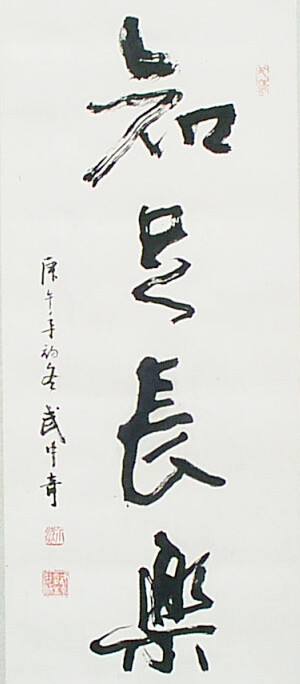 知足長樂
庚午年初冬 武中奇